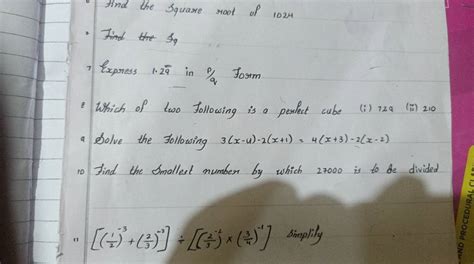 Find the Square root of 1024
6 Find the Sq
7 Express 1.29̅ in p/q Form
8 Which of two Following is a perfect cube (i) 729 (ii) 210
9 Solve the Following 3(x-4)-2(x+1) = 4(x+3)-2(x-2)
10 Find the Smallest number by which 27000 is to be divided
11 [(1/3)⁻³ + (2/3)⁻³] ÷ [(2/5)⁻² × (3/4)⁻¹] Simplify
PROCEDURAL